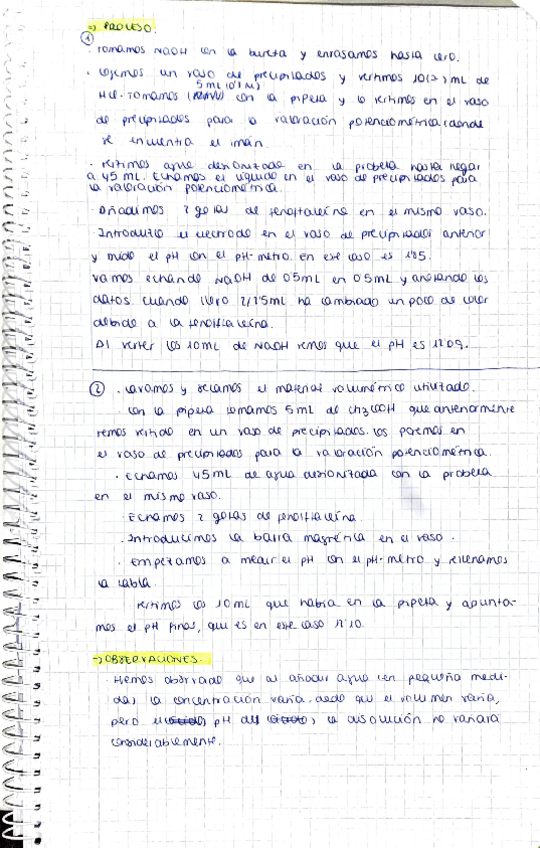 -> PROCESO.
①
· Tomamos NaOH con la bureta y enrasamos hasta cero.
· Cojemos un vaso de precipitados y vertimos 10(2) mL de
5 mL (0'1 M)
HCl. Tomamos con la pipeta y lo vertimos en el vaso
de precipitados para la valoración potenciométrica (donde
se encuentra el imán.
· Vertimos agua desionizada en la probeta hasta llegar
a 45 mL. Echamos el líquido en el vaso de precipitados para
la valoración potenciométrica.
· Añadimos 2 gotas de fenolftaleína en el mismo vaso.
· Introduzco el electrodo en el vaso de precipitados anterior
y mido el pH con el pH-metro. en este caso es 1'85.
Vamos echando NaOH de 0'5 mL en 0'5 mL y anotando los
datos. Cuando llevo mL ha cambiado un poco de color
debido a la fenolftaleína.
Al verter los 10 mL de NaOH vemos que el pH es 12'09.
② · Lavamos y secamos el material volumétrico utilizado.
· Con la pipeta tomamos 5 mL de CH3COOH que anteriormente
hemos vertido en un vaso de precipitados. Los ponemos en
el vaso de precipitados para la valoración potenciométrica.
· Echamos 45 mL de agua desionizada con la probeta
en el mismo vaso.
· Echamos 2 gotas de fenolftaleína
· Introducimos la barra magnética en el vaso.
· Empezamos a medir el pH con el pH-metro y rellenamos
la tabla.
Vertimos los 10 mL que había en la pipeta y apunta-
mos el pH final, que es en este caso 12'10.
-> OBSERVACIONES.
· Hemos observado que al añadir agua (en pequeña medi-
da) la concentración varía. dado que el volumen varía,
pero el pH de la disolución no variará
considerablemente.